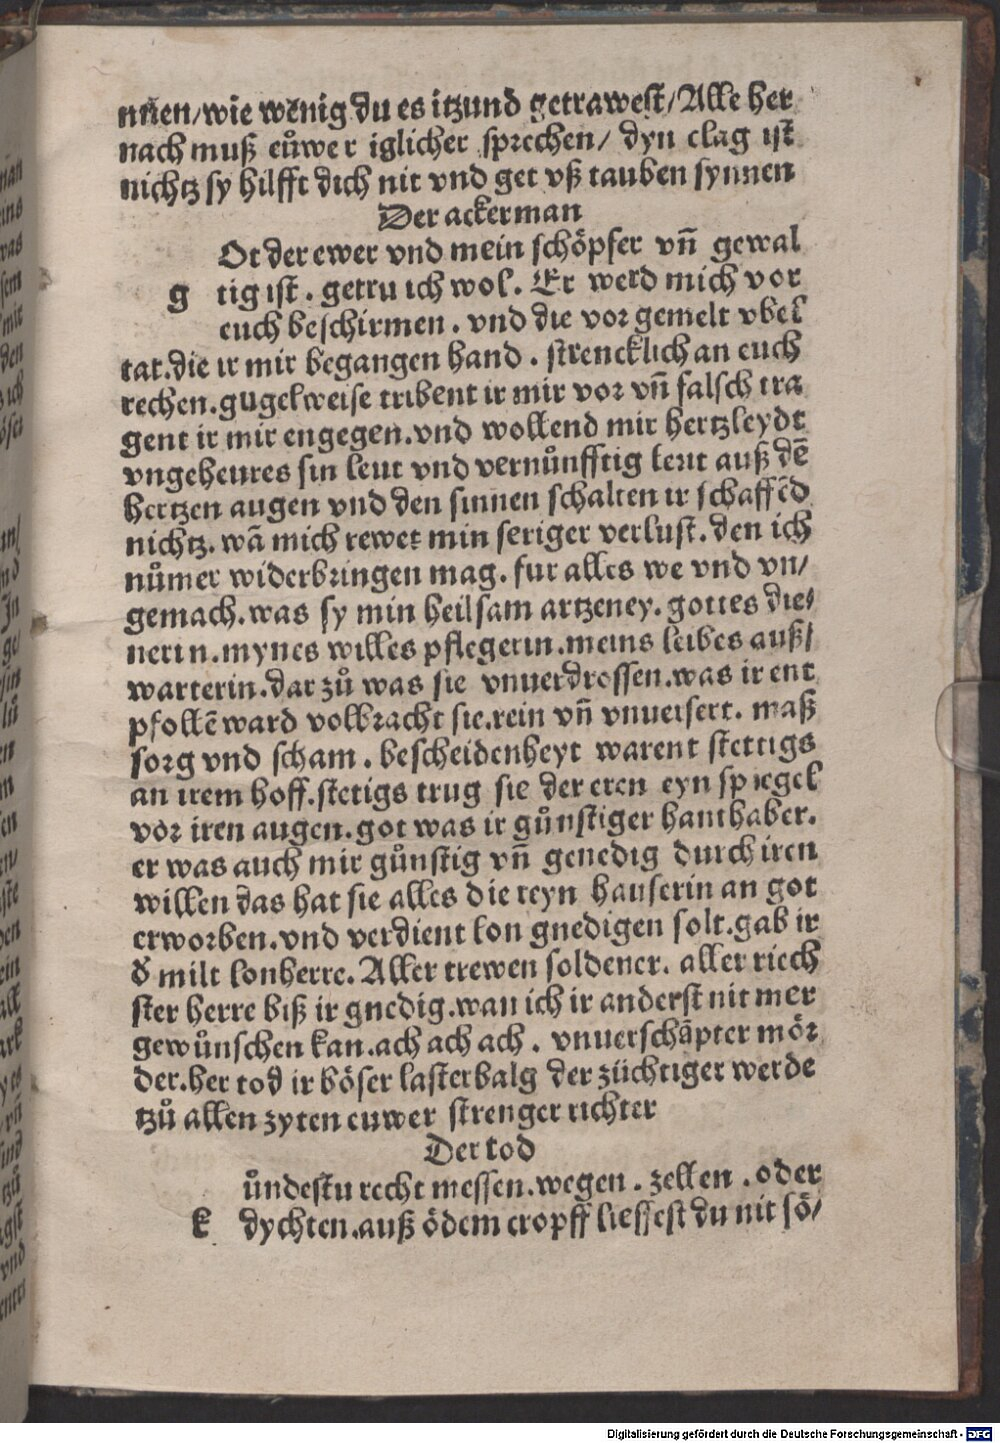 nnen/wie wenig du es itzund getrawest/Alle her
nach muß eůwer iglicher sprechen/ dyn clag ist
nichtz sy hilfft dich nit vnd get vß tauben synnen
Der ackerman
Ot der ewer vnd mein schöpfer vn̄ gewal
g tig ist . getru ich wol . Er werd mich vor
euch beschirmen . vnd die vor gemelt vbel
tat.die ir mir begangen hand . strencklich an euch
rechen.gugelweise tribent ir mir vor vn̄ falsch tra
gent ir mir engegen.vnd wollend mir hertzleydt
vngeheures sin leut vnd vernůnfftig leut auß dē
hertzen augen vnd den sinnen schalten ir schaffēd
nichtz. wā mich rewet min seriger verlust. den ich
nůmer widerbringen mag. fur alles we vnd vn/
gemach.was sy min heilsam artzeney. gottes die/
nerin.mynes willes pflegerin.meins leibes auß/
warterin.dar zů was sie vnuerdrossen.was ir ent
pfollē ward volbracht sie.rein vn̄ vnueisert. maß
sorg vnd scham . bescheidenheyt warent stettigs
an irem hoff.stetigs trug sie der eren eyn spiegel
vor iren augen.got was ir gůnstiger hanthaber.
er was auch mir gůnstig vn̄ genedig durch iren
willen das hat sie alles die reyn hauserin an got
erworben.vnd verdient lon gnedigen solt.gab ir
d̄ milt lonherre. Aller trewen soldener. aller riech
ster herre biß ir gnedig.wan ich ir anderst nit mer
gewůnschen kan.ach ach ach . vnuerschāpter mör
der.her tod ir böser lasterbalg der züchtiger werde
tzů allen zyten euwer strenger richter
Der tod
ůndestu recht messen.wegen . zellen . oder
k dychten.auß ödem cropff liessest du nit sö/
Digitalisierung gefördert durch die Deutsche Forschungsgemeinschaft - DFG